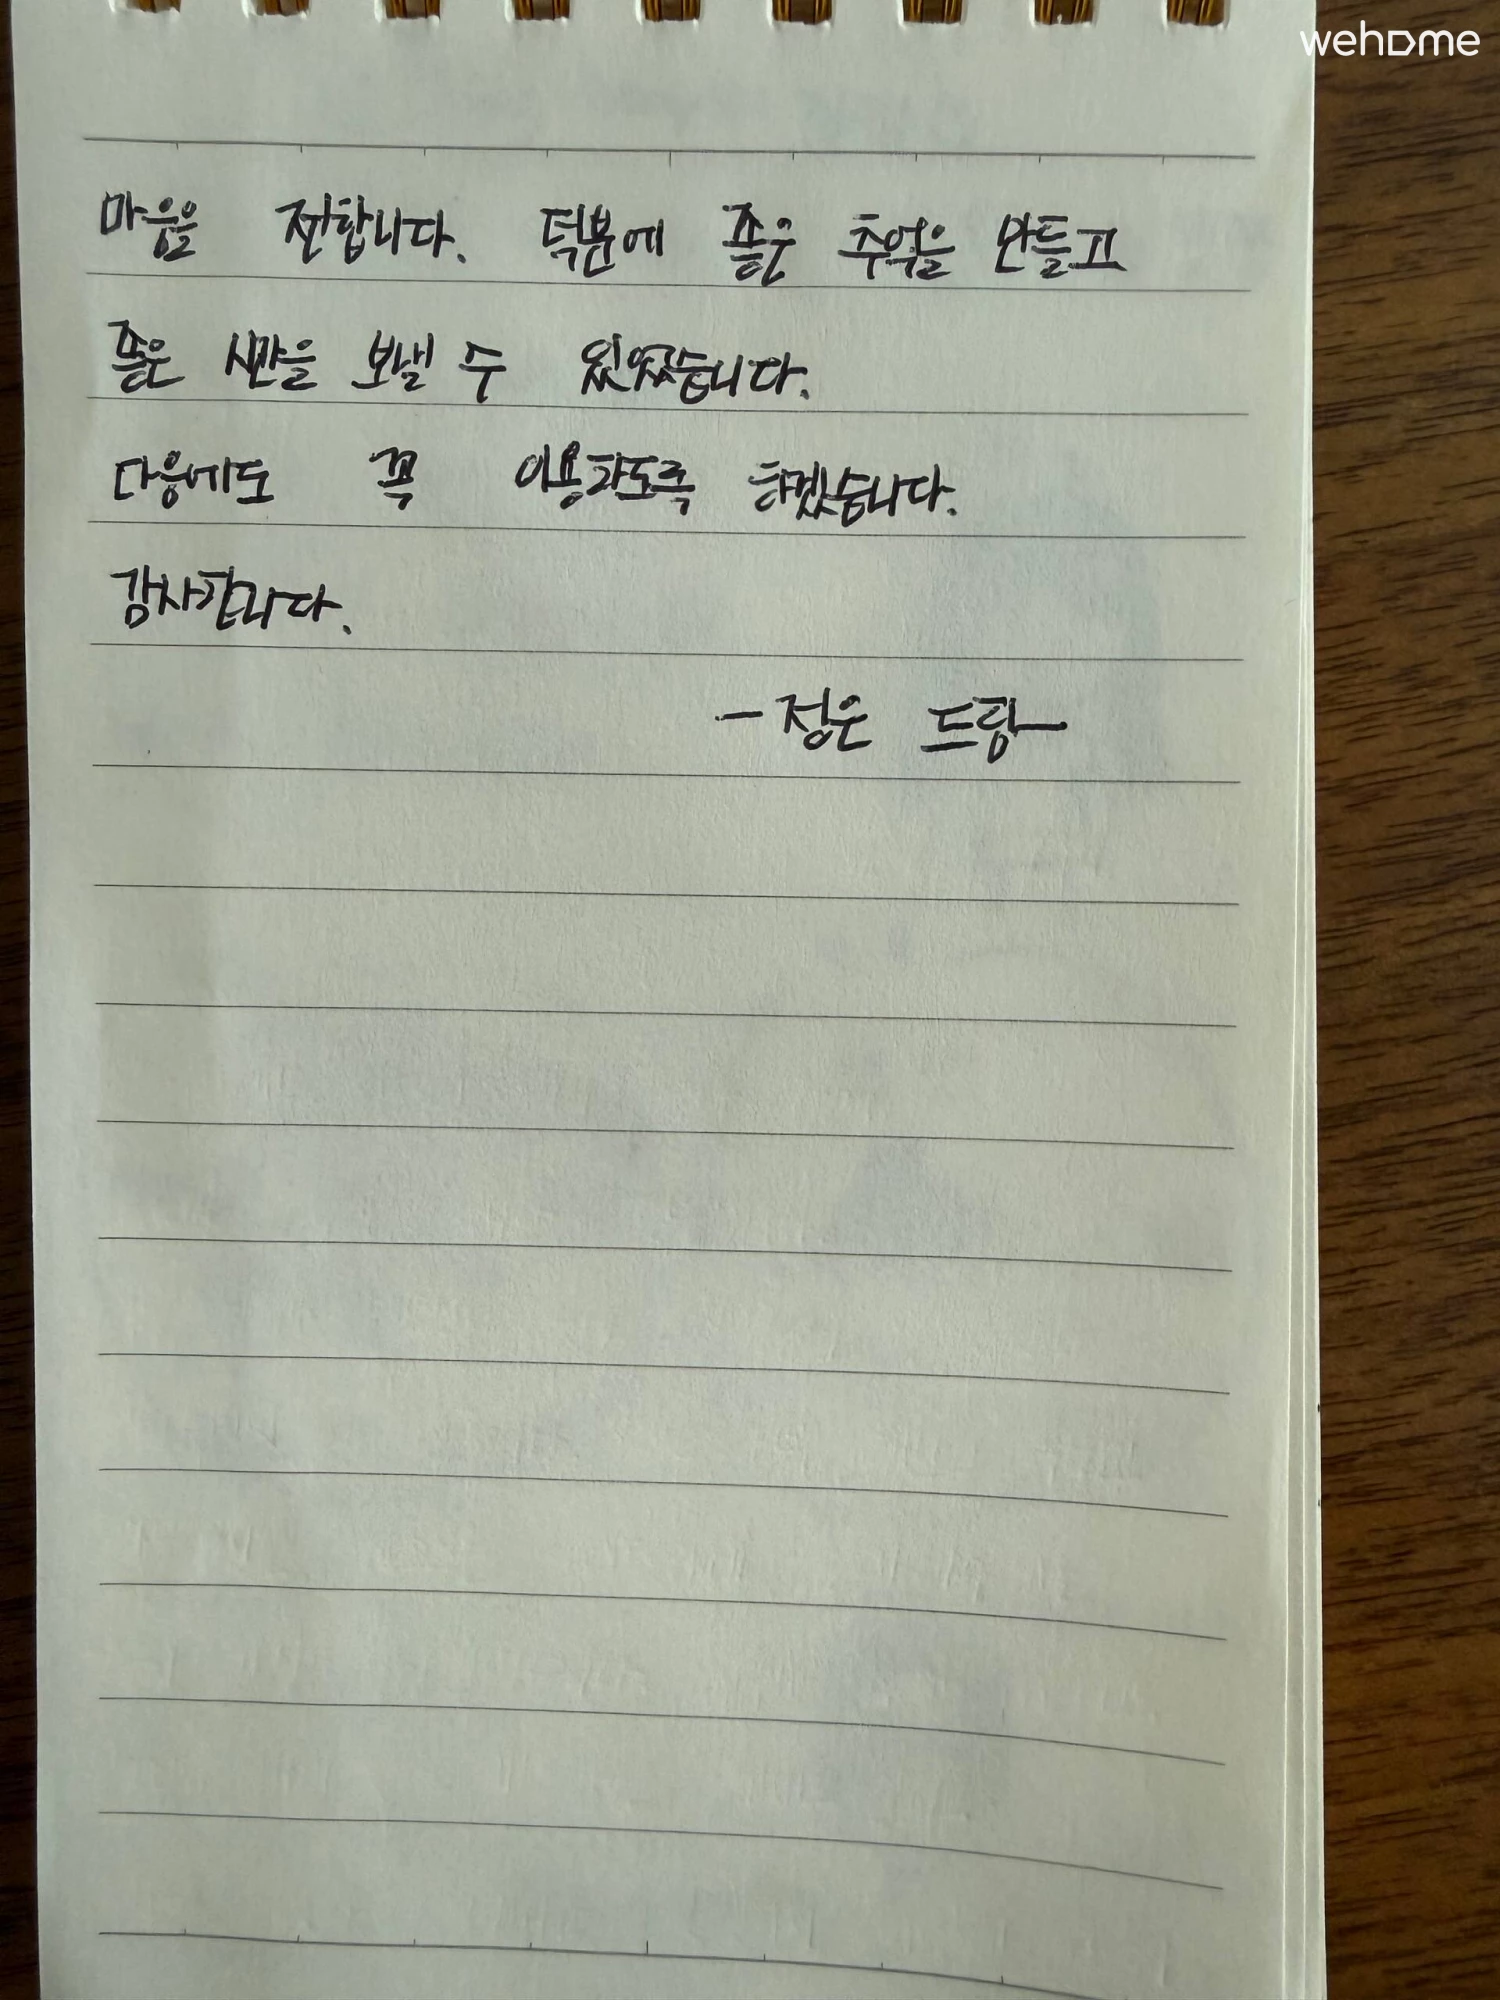 wehome
마음을 전합니다. 덕분에 좋은 추억을 만들고
좋은 시간을 보낼 수 있었습니다.
다음에도 꼭 이용하도록 하겠습니다.
감사합니다.
- 정은 드림 -